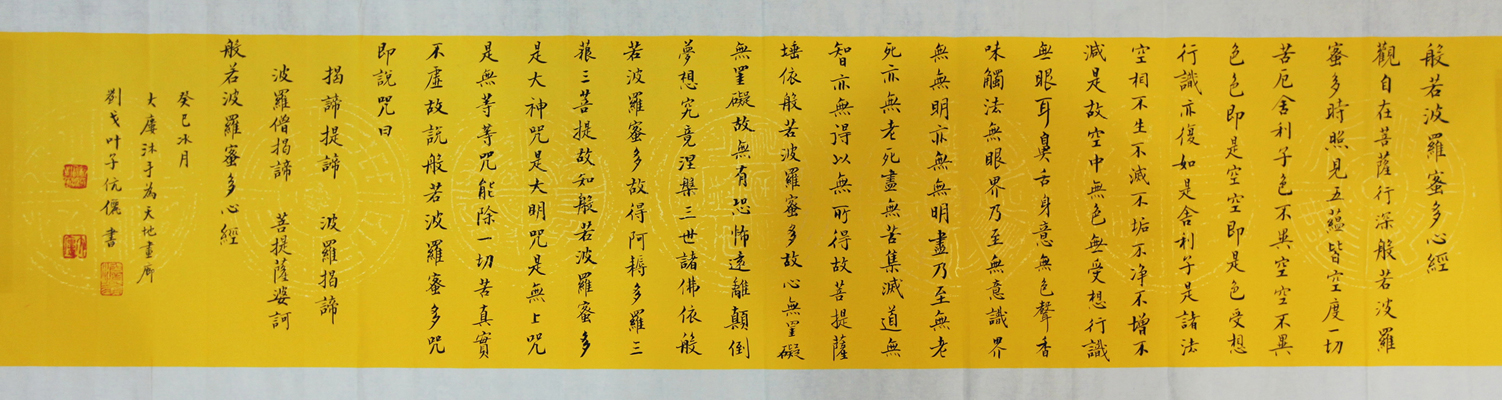 般若波羅蜜多心經
觀自在菩薩行深般若波羅
蜜多時照見五蘊皆空度一切
苦厄舍利子色不異空空不異
色色即是空空即是色受想
行識亦復如是舍利子是諸法
空相不生不滅不垢不净不增不
減是故空中無色無受想行識
無眼耳鼻舌身意無色聲香
味觸法無眼界乃至無意識界
無無明亦無無明盡乃至無老
死亦無老死盡無苦集滅道無
智亦無得以無所得故菩提薩
埵依般若波羅蜜多故心無罣礙
無罣礙故無有恐怖遠離顛倒
夢想究竟涅槃三世諸佛依般
若波羅蜜多故得阿耨多羅三
藐三菩提故知般若波羅蜜多
是大神咒是大明咒是無上咒
是無等等咒能除一切苦真實
不虛故説般若波羅蜜多咒
即説咒曰
揭諦揭諦 波羅揭諦
波羅僧揭諦 菩提薩婆訶
般若波羅蜜多心經
癸巳冰月
沐手為天地畫廊
叶子伉儷書